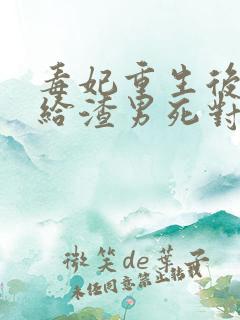 毒妃重生後
給渣男死對
微笑de葉子
未任同意禁止轉載